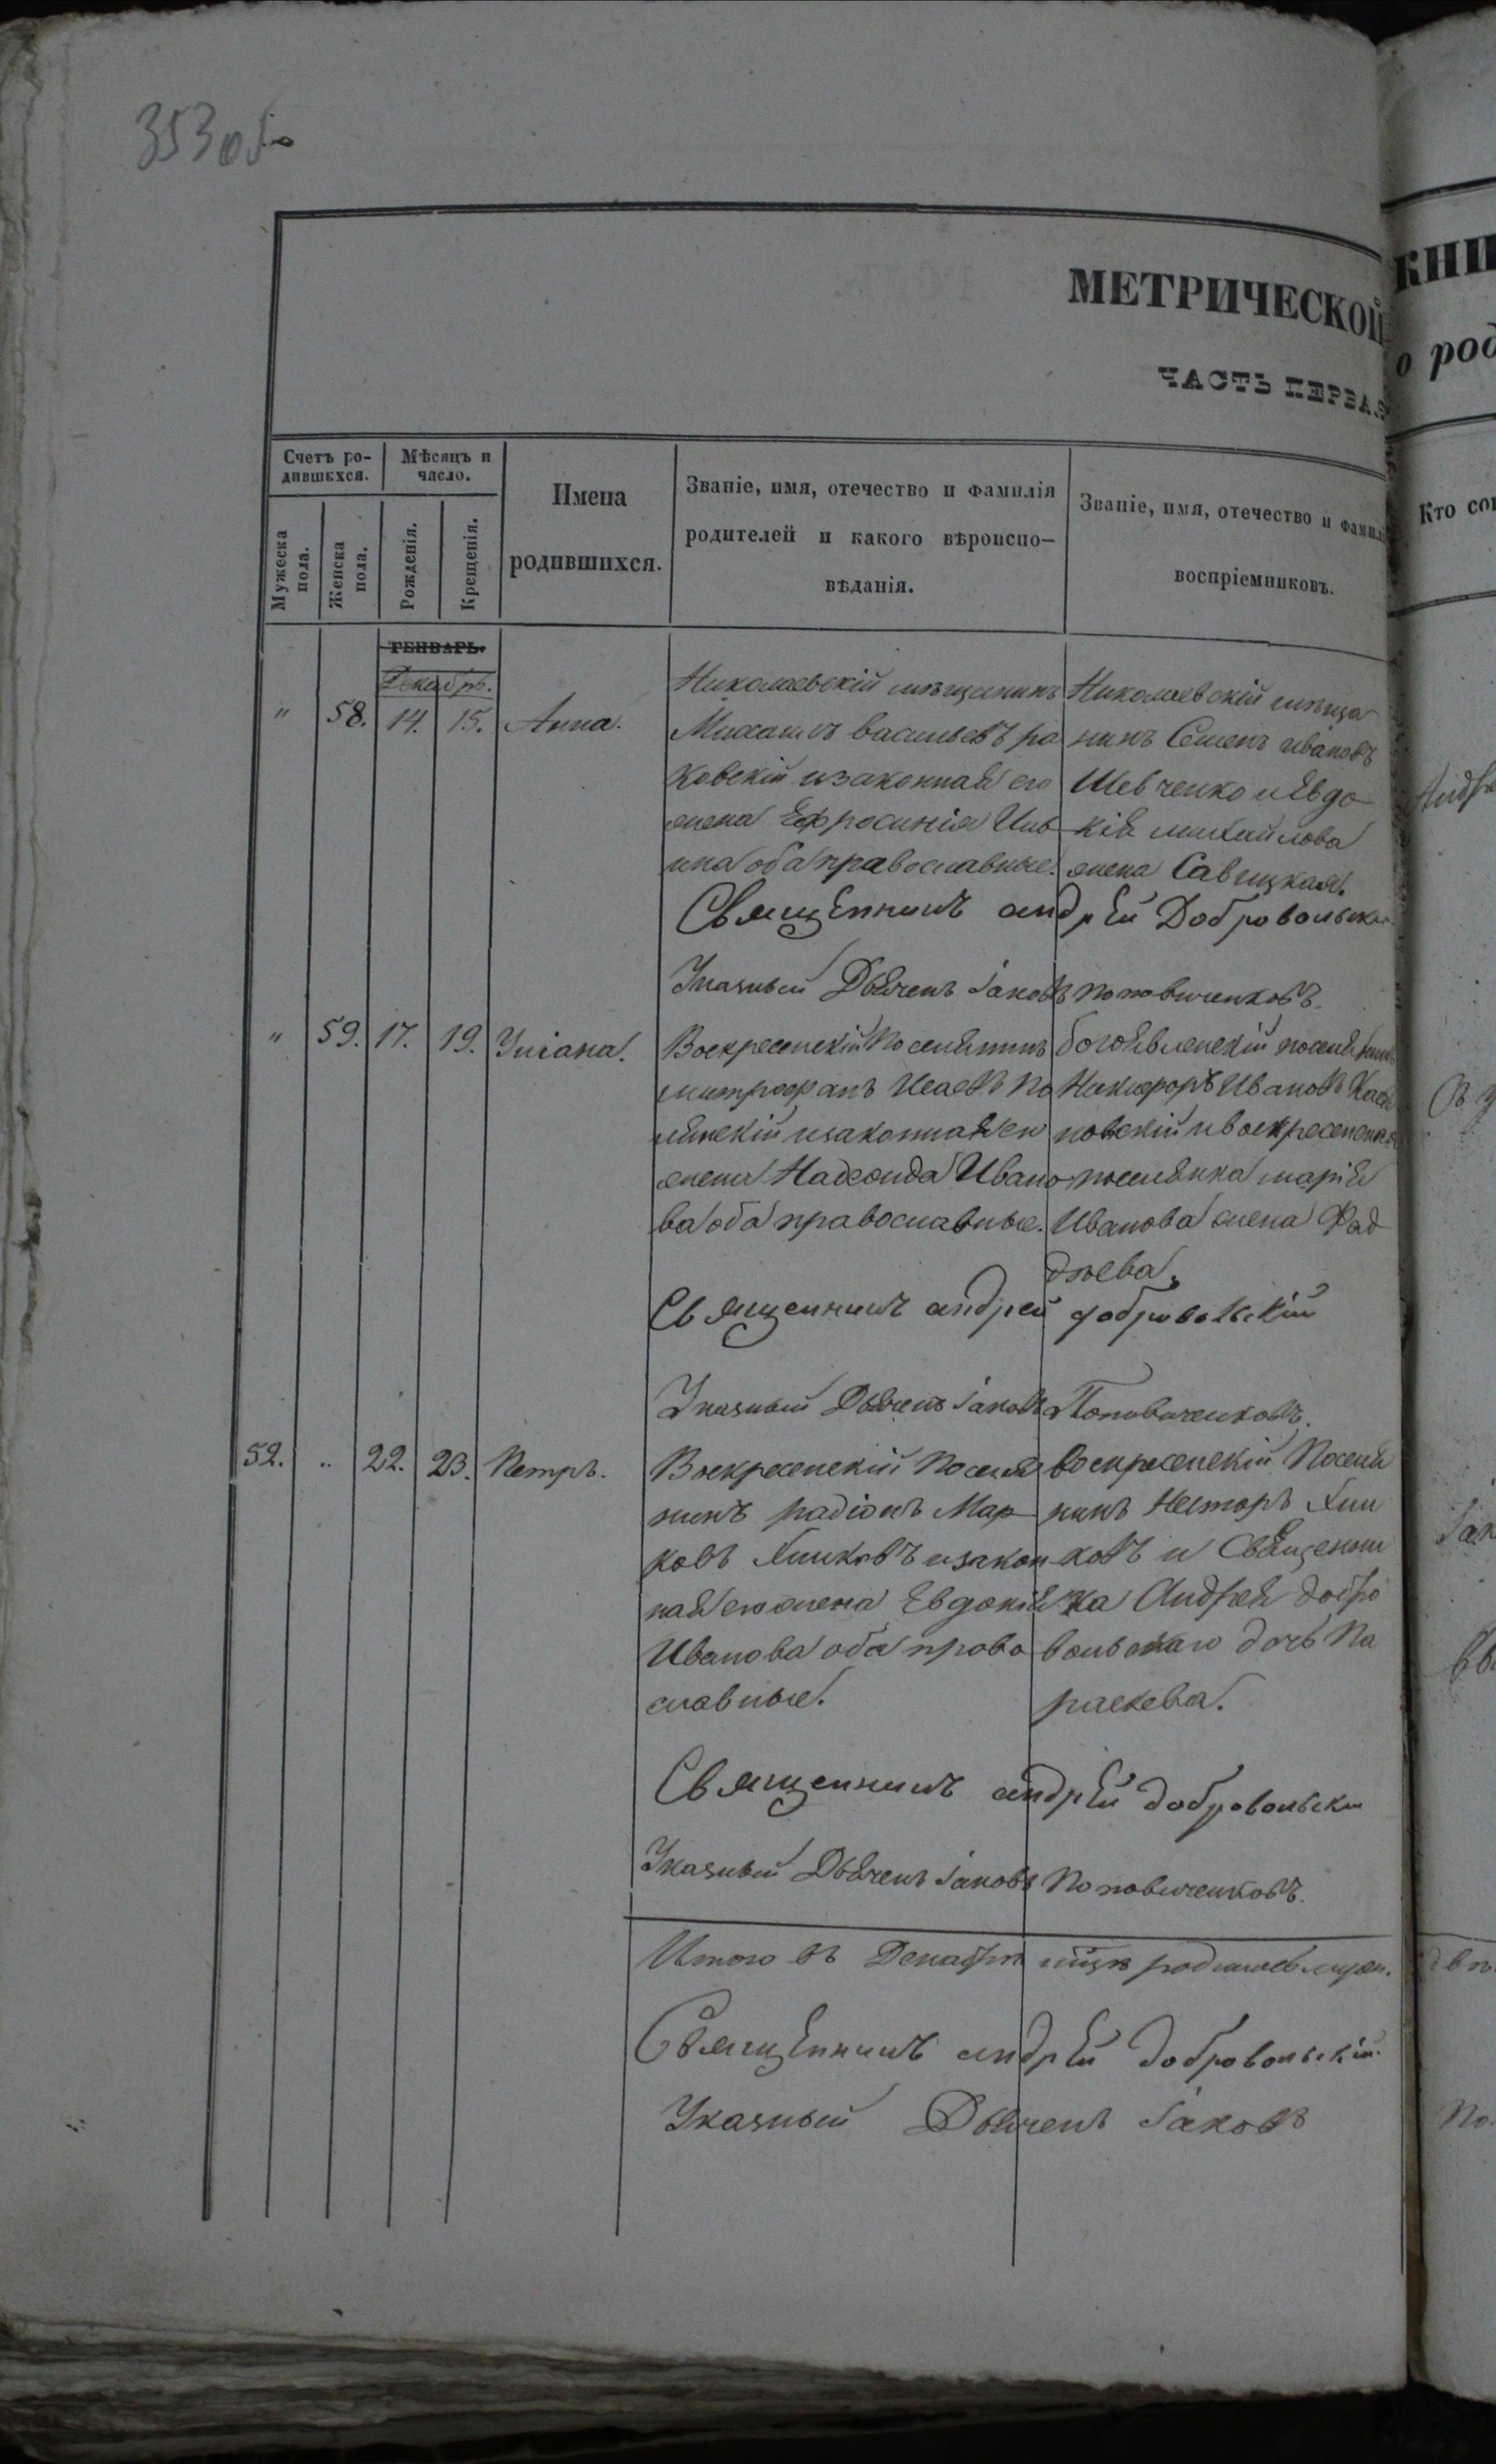 353 об
МЕТРИЧЕСКОЙ
КНИ
ЧАСТЬ ПЕРВАЯ
о род
Счетъ ро-
дившихся.
Мѣсяцъ и
число.
Имена
родившихся.
Званіе, имя, отечество и фамилія
родителей и какого вѣроиспо-
вѣданія.
Званіе, имя, отечество и фамилі
воспріемниковъ.
Кто со
Мужеска
пола.
Женска
пола.
Рожденія.
Крещенія.
ГЕНВАРЬ.
Декабрь.
" 58. 14. 15. Анна.
Николаевскій мѣщанинъ
Михаилъ васильевъ ра
ковскій и законная его
жена Ефросинія
оба православные.
Николаевскій мѣща
нинъ Семенъ ивановъ
Шевченко и Евдо
кія михайлова
жена Савицкая.
Священникъ андрей Добровольски
Указный Дьячекъ Іаковъ Поповиченковъ.
" 59. 17. 19. Уліана.
Воскресенскій Поселянинъ
митрофанъ Исаевъ По
лянскій и законная его
жена Надежда Ивано
ва оба православные.
богоявленскій поселянинъ
Никифоръ Ивановъ
новскій и воскресенска
поселянка марія
Иванова жена Фад
дѣева.
Священникъ андрей добровольскій
Указный Дьячекъ Іаковъ Поповиченковъ.
52. " 22. 23. Петръ.
Воскресенскій Поселя
нинъ радіонъ Мар
ковъ Линковъ и закон
ная его жена Евдокія
Иванова оба право
славные.
воскресенскій Поселя
нинъ Несторъ Лин
ковъ и Священни
ка Андрея добро
вольскаго дочь Па
раскева.
Священникъ андрей добровольски
Указный Дьячекъ Іаковъ Поповиченковъ.
Итого въ Декабрѣ мцѣ родилось муж.
Священникъ андрей добровольскій.
Указный Дьячекъ Іаковъ